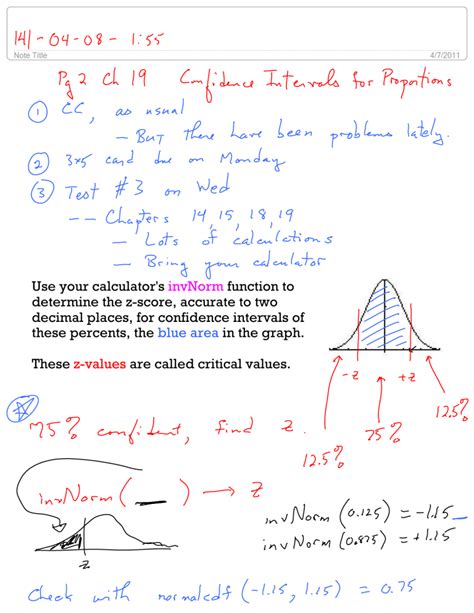 141-04-08-1:55
Note Title
4/7/2011
Pg 2 Ch 19 Confidence Intervals for Proportions
① CC, as usual
- But there have been problems lately.
② 3x5 card due on Monday
③ Test #3 on Wed
-- Chapters 14, 15, 18, 19
- Lots of calculations
- Bring your calculator
Use your calculator's invNorm function to
determine the z-score, accurate to two
decimal places, for confidence intervals of
these percents, the blue area in the graph.
These z-values are called critical values.
-z +z
12.5% 75% 12.5%
75% confident, find z.
invNorm( __ ) → z
z
invNorm(0.125) = -1.15
invNorm(0.875) = +1.15
Check with normalcdf(-1.15, 1.15) = 0.75